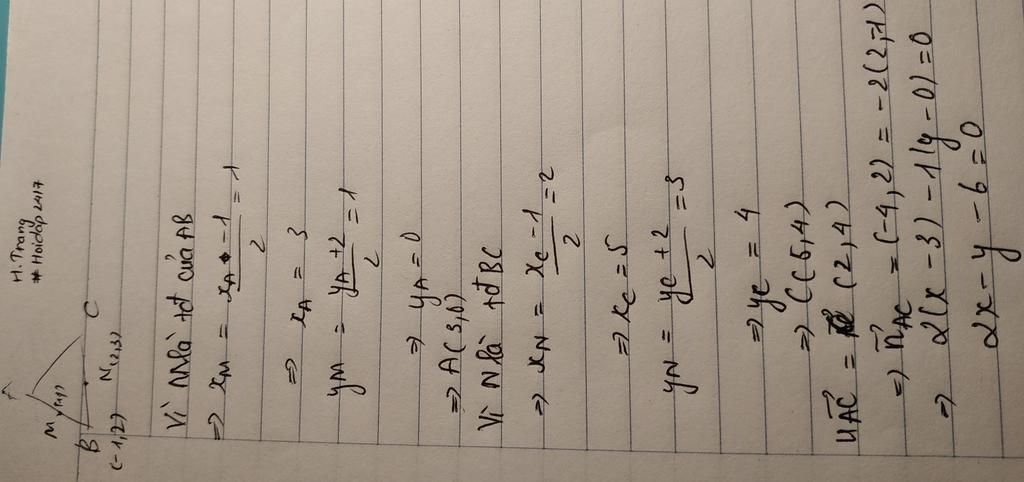 H. Trang
# Hoidap247
A
M (1,1)
B
C
(-1,2)
N(2,3)
Vì M là tđ của AB
⇒ x_M = (x_A - 1)/2 = 1
⇒ x_A = 3
y_M = (y_A + 2)/2 = 1
⇒ y_A = 0
⇒ A(3,0)
Vì N là tđ BC
⇒ x_N = (x_C - 1)/2 = 2
⇒ x_C = 5
y_N = (y_C + 2)/2 = 3
⇒ y_C = 4
⇒ C(5,4)
u⃗_AC = (2,4)
⇒ n⃗_AC = (-4,2) = -2(2,-1)
⇒ 2(x - 3) - 1(y - 0) = 0
2x - y - 6 = 0